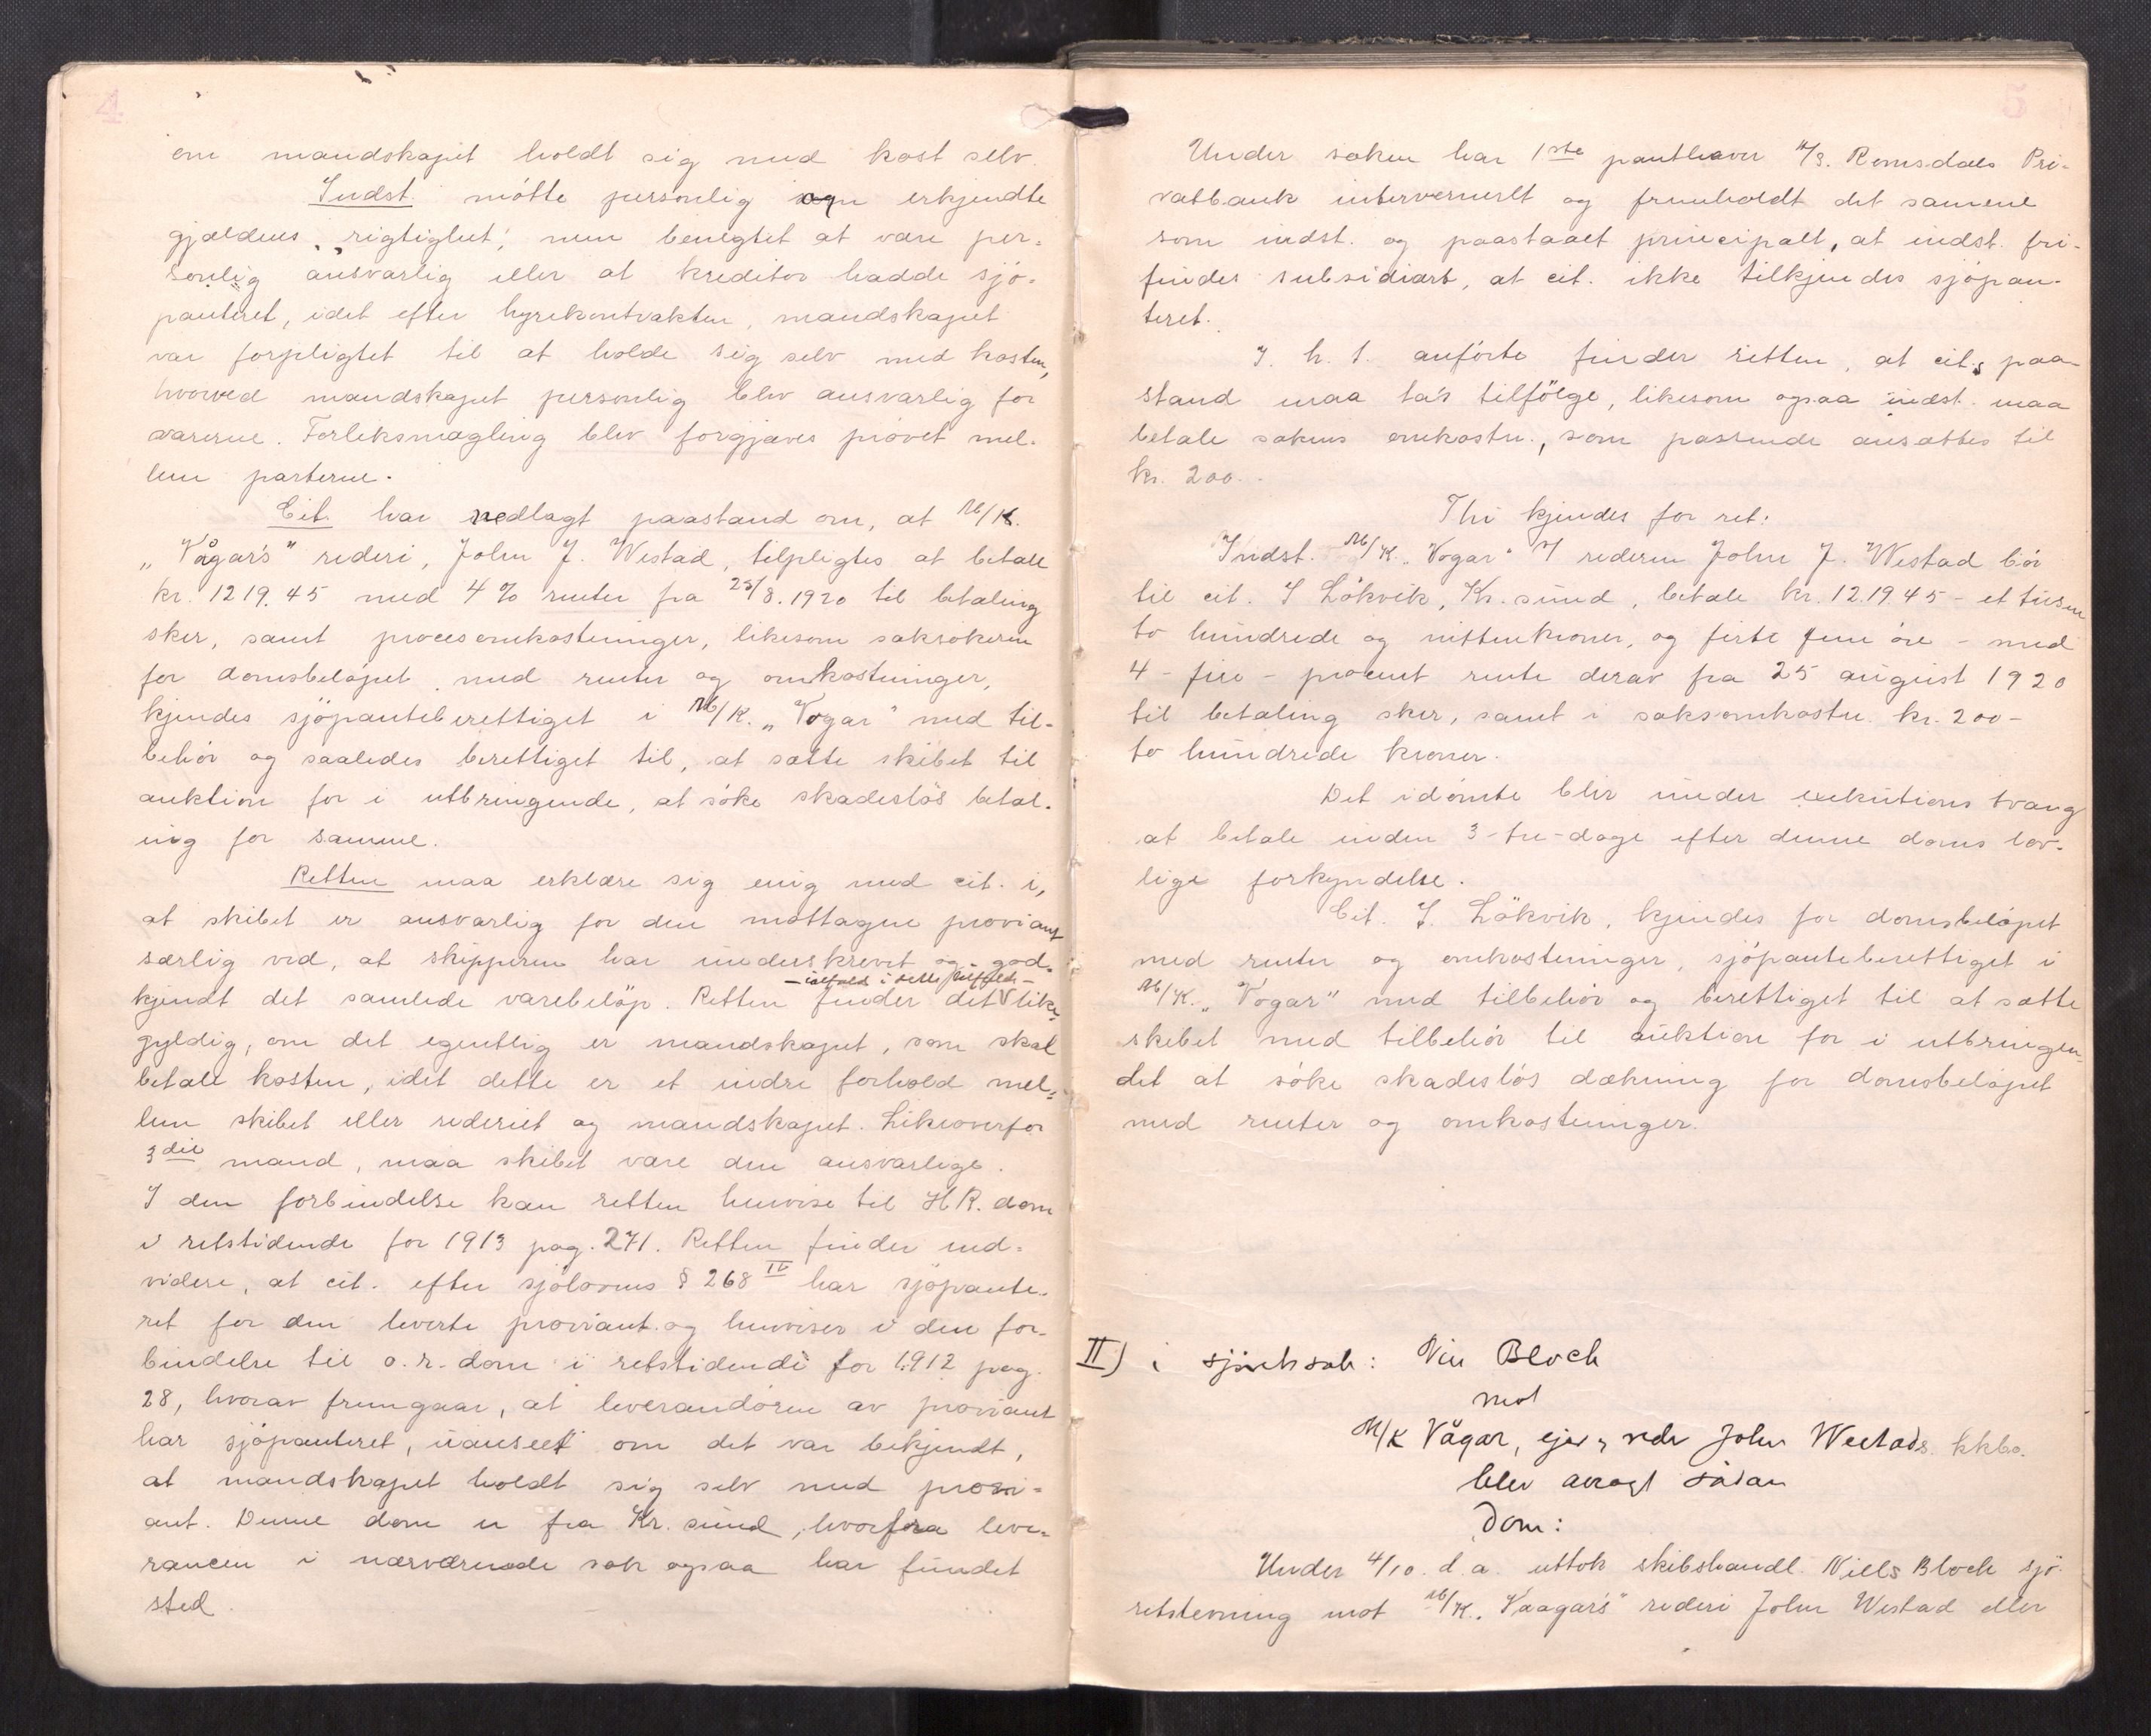 4
om mandskapet holdt sig med kost selv.
Indst. mötte personlig og erkjendte
gjældens rigtighet, men benegtet at være per-
sonlig ansvarlig eller at kreditor hadde sjö-
panteret, idet efter hyrekontrakten, mandskapet
var forpligtet til at holde sig selv med kosten,
hvorved mandskapet personlig blev ansvarlig for
varerne. Forliksmægling blev forgjæves prövet mel-
lem parterne.
Cit. har nedlagt paastand om, at M/K.
„Vågar's" rederi, John J. Westad, tilpligtes at betale
kr. 1219.45 med 4% renter fra 25/8.1920 til betaling
sker, samt procesomkostninger, likesom saksökeren
for domsbelöpet med renter og omkostninger,
kjendes sjöpanteberettiget i M/K. „Vogar" med til-
behör og saaledes berettiget til, at sætte skibet til
auktion for i utbringende, at söke skadeslös betal-
ing for samme.
Retten maa erklære sig enig med cit. i,
at skibet er ansvarlig for den mottagne proviant
særlig ved, at skipperen har underskrevet og god-
- ialfald i dette tilfælde -
kjendt det samlede varebelöp. Retten finder det V like-
gyldig, om det egentlig er mandskapet, som skal
betale kosten, idet dette er et indre forhold mel-
lem skibet eller rederiet og mandskapet. Likeoverfor
3die mand, maa skibet være den ansvarlige.
I den forbindelse kan retten henvise til H.R. dom
i retstidende for 1913 pag. 271. Retten finder end-
videre, at cit. efter sjölovens § 268 IV har sjöpante-
ret for den leverte proviant og henviser i den for-
bindelse til o.r. dom i retstidende for 1912 pag.
28, hvorav fremgaar, at leverandören av proviant
har sjöpanteret, uanseet om det var bekjendt,
at mandskapet holdt sig selv med provi-
ant. Denne dom er fra Kr. sund, hvorfra leve-
rancen i nærværende sak ogsaa har fundet
sted.
5
Under saken har 1ste panthaver A/S. Romsdals Pri-
vatbank intervenerlt og fremholdt det samme
som indst. og paastaaet principalt, at indst. fri-
findes subsidiært, at cit. ikke tilkjendes sjöpan-
teret.
I. h. t. anförte finder retten, at cit.s paa-
stand maa ta's tilfölge, likesom ogsaa indst. maa
betale sakens omkostn., som passende ansættes til
kr. 200.-
Thi kjendes for ret:
Indst. M/K. „Vogar" V rederen John J. Westad bör
til cit. J Lökvik, Kr.sund, betale kr. 1219.45 - et tusen
to hundrede og nitten kroner, og firti fem öre - med
4 - fire - procent rente derav fra 25 august 1920
til betaling sker, samt i saksomkostn. kr. 200 -
to hundrede kroner.
Det idömte blir under exekutions tvang
at betale inden 3 - tre - dage efter denne doms lov-
lige forkyndelse.
Cit. J. Lökvik, kjendes for domsbelöpet
med renter og omkostninger, sjöpanteberettiget i
M/K. „Vogar" med tilbehör og berettiget til at sætte
skibet med tilbehör til auktion for i utbringen-
det at söke skadeslös dækning for domsbelöpet
med renter og omkostninger.
II) i sjöretssak: Nils Bloch
mot
M/K Vågar, ejer, reder John Westads
blev avsagt sådan
Dom:
Under 4/10. d.a. uttok skibshandl. Niels Bloch sjö-
retstevning mot M/K. „Vaagar's" rederi John Westad eller